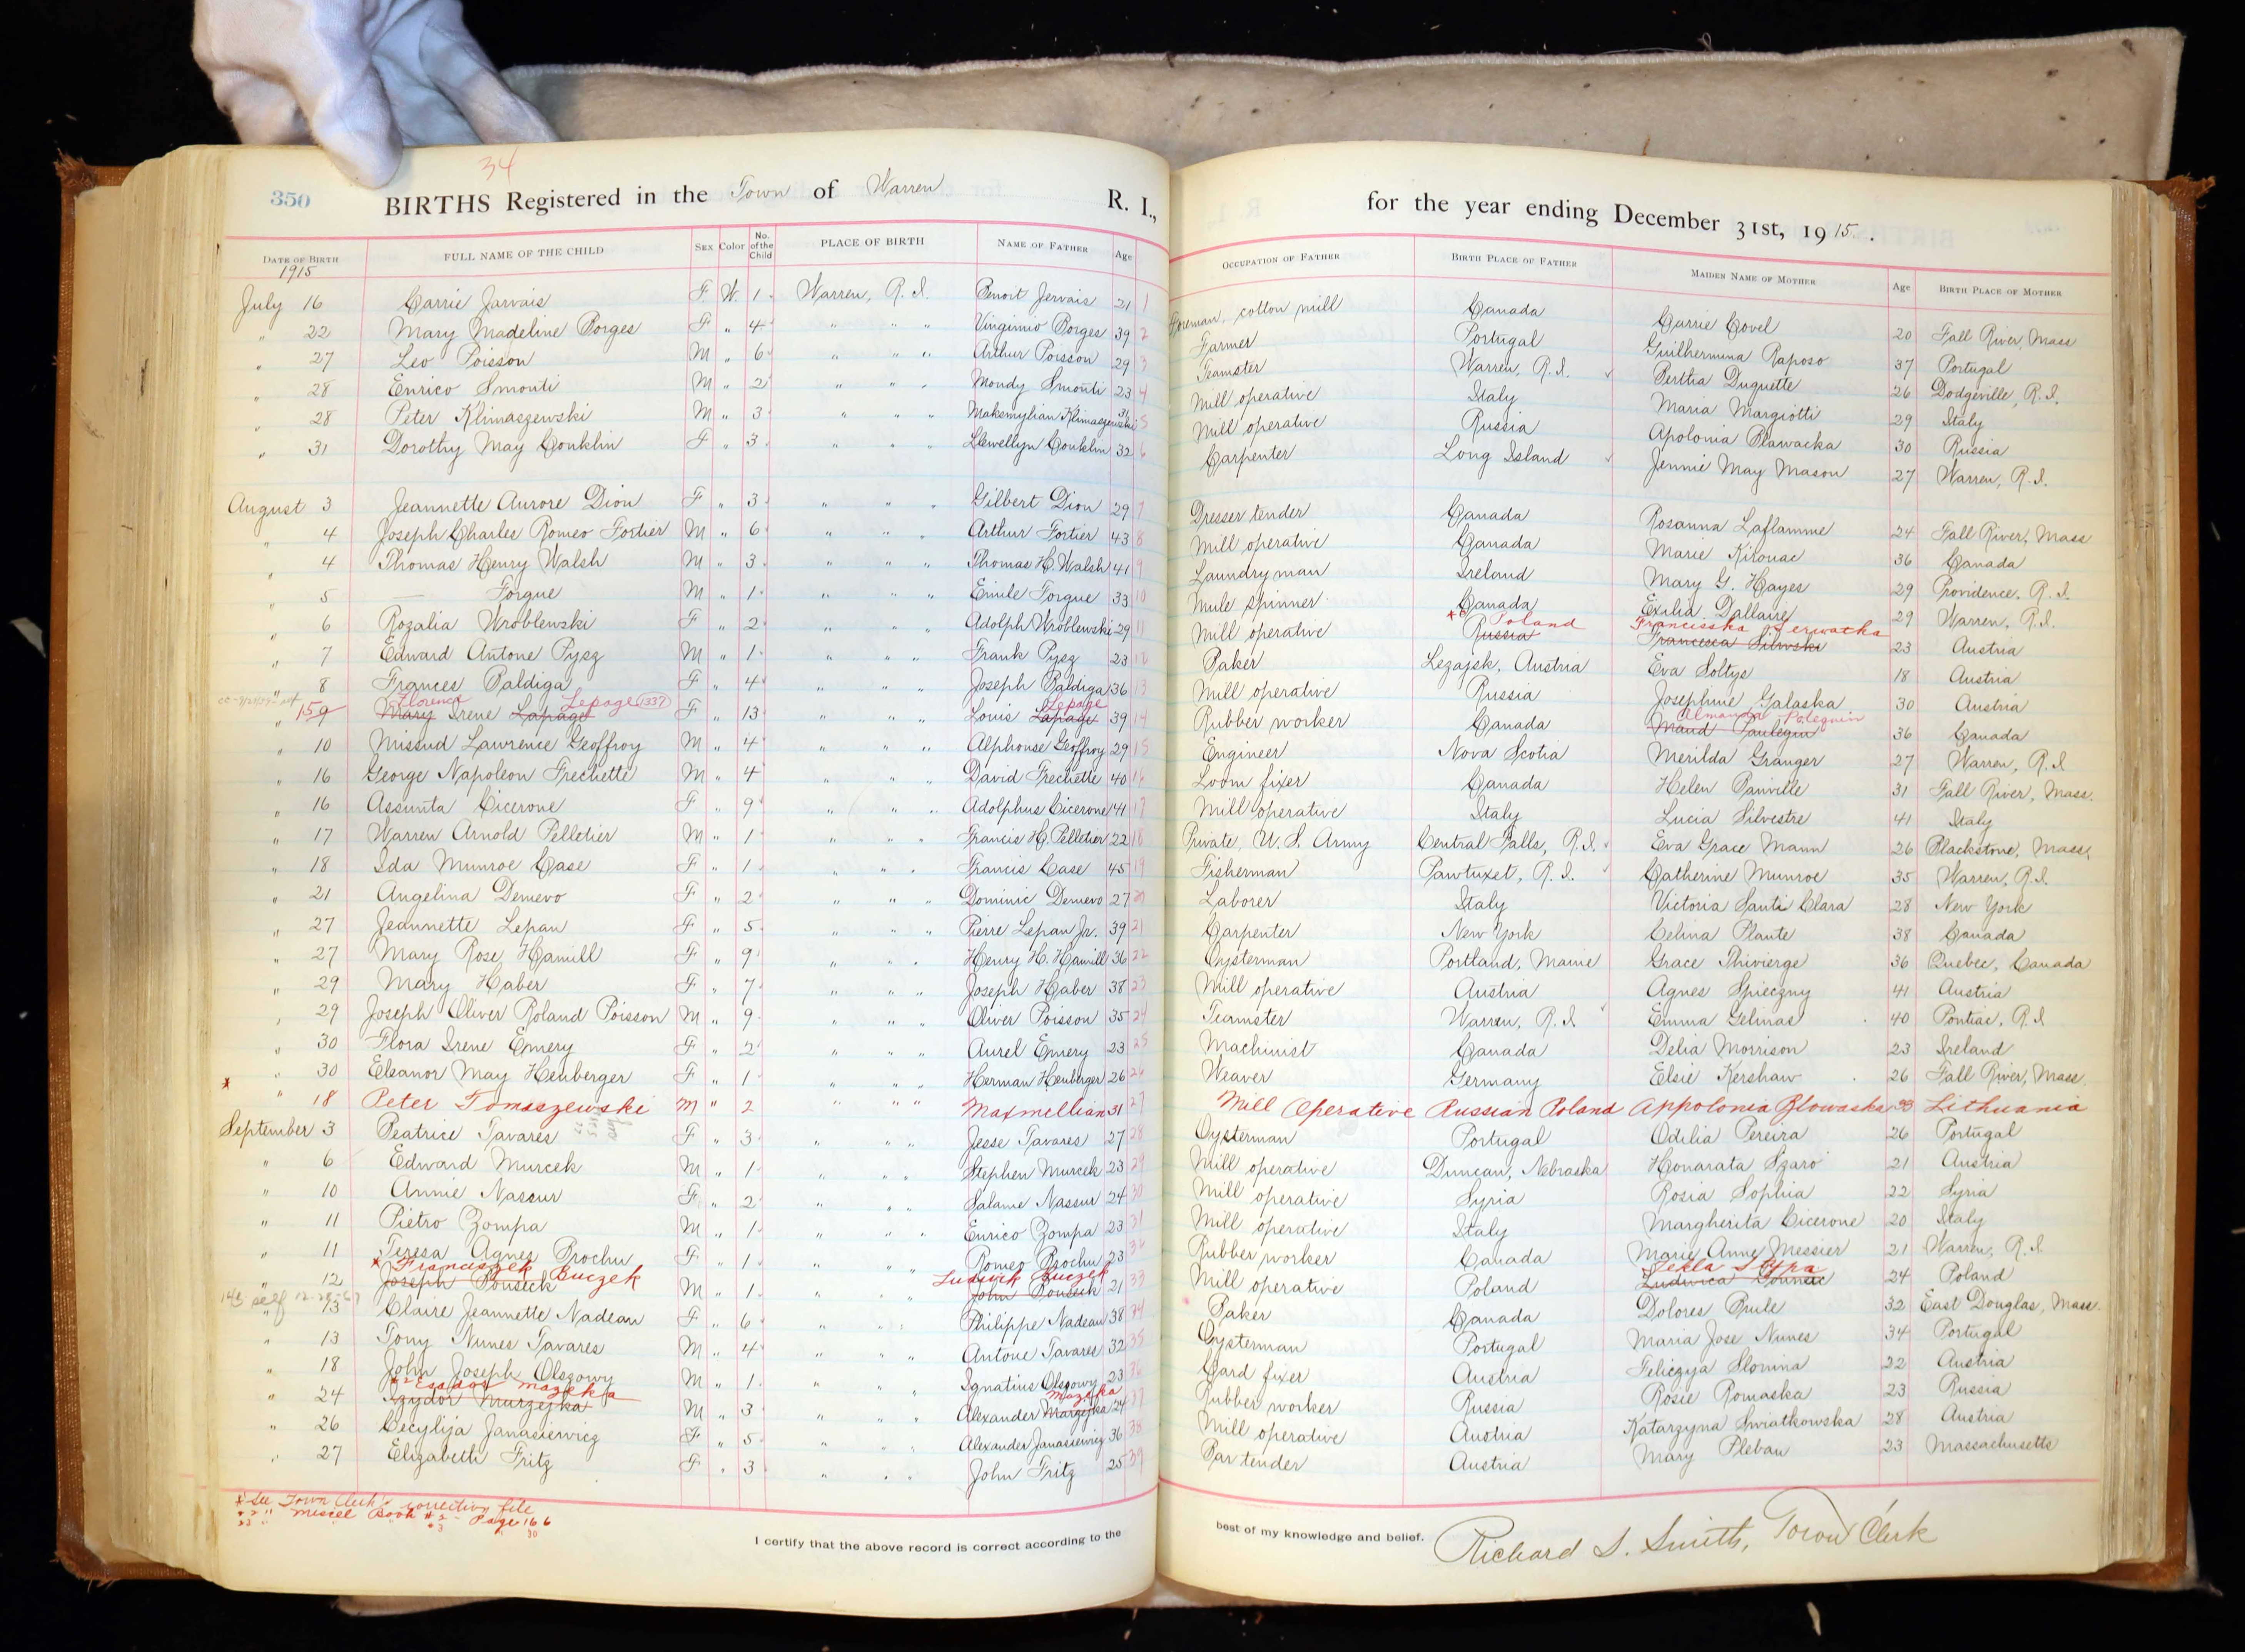 34
350
BIRTHS Registered in the Town of Warren R. I., for the year ending December 31st, 1915.
DATE OF BIRTH FULL NAME OF THE CHILD SEX Color No. of the Child PLACE OF BIRTH NAME OF FATHER Age OCCUPATION OF FATHER BIRTH PLACE OF FATHER MAIDEN NAME OF MOTHER Age BIRTH PLACE OF MOTHER
1915
July 16 Carrie Jarvais F. W. 1 Warren, R. I. Benoit Jervais 21 1 Foreman, cotton mill Canada Carrie Covel 20 Fall River, Mass
" 22 Mary Madeline Borges F " 4 " " " Virginio Borges 39 2 Farmer Portugal Guilhermina Raposo 37 Portugal
" 27 Leo Poisson M " 6 " " " Arthur Poisson 29 3 Teamster Warren, R.I. Bertha Duquette 26 Dodgeville, R.I.
" 28 Enrico Smonti M " 2 " " " Mondy Smonti 23 4 Mill operative Italy Maria Margiotti 29 Italy
" 28 Peter Klimaszewski M " 3 " " " Maksmylian Klimaszewski 31 5 Mill operative Russia Apolonia Blawacka 30 Russia
" 31 Dorothy May Conklin F " 3 " " " Llewellyn Conklin 32 6 Carpenter Long Island Jennie May Mason 27 Warren, R.I.
August 3 Jeannette Aurore Dion F " 3 " " " Gilbert Dion 29 7 Dresser tender Canada Rosanna Laflamme 24 Fall River, Mass
" 4 Joseph Charles Romeo Fortier M " 6 " " " Arthur Fortier 43 8 Mill operative Canada Marie Kirouac 36 Canada
" 4 Thomas Henry Walsh M " 3 " " " Thomas H. Walsh 41 9 Laundryman Ireland Mary G. Hayes 29 Providence, R.I.
" 5 — Forgue M " 1 " " " Emile Forgue 33 10 Mule spinner Canada Exilia Dallaire 29 Warren, R.I.
Poland Franciszka
" 6 Rozalia Wroblewski F " 2 " " " Adolph Wroblewski 29 11 Mill operative Russia Francesca 23 Austria
" 7 Edward Antone Pysz M " 1 " " " Frank Pysz 23 12 Baker Lezajsk, Austria Eva Soltys 18 Austria
" 8 Frances Baldiga F " 4 " " " Joseph Baldiga 36 13 Mill operative Russia Josephine Galaska 30 Austria
Florence Lepage 1337 Lepage Almanda
" 9 Mary Irene Lapage F " 13 " " " Louis Lapage 39 14 Rubber worker Canada Maud Paulequin 36 Canada
" 10 Missud Lawrence Geoffroy M " 4 " " " Alphonse Geoffroy 29 15 Engineer Nova Scotia Merilda Granger 27 Warren, R.I.
" 16 George Napoleon Frechette M " 4 " " " David Frechette 40 16 Loom fixer Canada Helen Banville 31 Fall River, Mass.
" 16 Assunta Cicerone F " 9 " " " Adolphus Cicerone 41 17 Mill operative Italy Lucia Silvestre 41 Italy
" 17 Warren Arnold Pelletier M " 1 " " " Francis H. Pelletier 22 18 Private, U. S. Army Central Falls, R.I. Eva Grace Mann 26 Blackstone, Mass.
" 18 Ida Munroe Case F " 1 " " " Francis Case 45 19 Fisherman Pawtuxet, R.I. Catherine Munroe 35 Warren, R.I.
" 21 Angelina Demevo F " 2 " " " Dominic Demevo 27 20 Laborer Italy Victoria Santi Clara 28 New York
" 27 Jeannette Lepan F " 5 " " " Pierre Lepan Jr. 39 21 Carpenter New York Celina Plante 38 Canada
" 27 Mary Rose Hamill F " 9 " " " Henry H. Hamill 36 22 Oysterman Portland, Maine Grace Thivierge 36 Quebec, Canada
" 29 Mary Haber F " 7 " " " Joseph Haber 38 23 Mill operative Austria Agnes Spieczny 41 Austria
" 29 Joseph Oliver Roland Poisson M " 9 " " " Oliver Poisson 35 24 Teamster Warren, R.I. Emma Gelinas 40 Pontiac, R.I.
" 30 Flora Irene Emery F " 2 " " " Aurel Emery 23 25 Machinist Canada Delia Morrison 23 Ireland
" 30 Eleanor May Heuberger F " 1 " " " Herman Heuberger 26 26 Weaver Germany Elsie Kershaw 26 Fall River, Mass.
* " 18 Peter Tomaszewski M " 2 " " " Maxmellian 31 27 Mill Operative Russian Poland Appolonia Blowaska 33 Lithuania
September 3 Beatrice Tavares F " 3 " " " Jesse Tavares 27 28 Oysterman Portugal Odilia Pereira 26 Portugal
" 6 Edward Murcek M " 1 " " " Stephen Murcek 23 29 Mill operative Duncan, Nebraska Honarata Szaro 21 Austria
" 10 Annie Nassur F " 2 " " " Salame Nassur 24 30 Mill operative Syria Rosia Sophia 22 Syria
" 11 Pietro Zompa M " 1 " " " Enrico Zompa 23 31 Mill operative Italy Margherita Cicerone 20 Italy
" 11 Teresa Agnes Brochu F " 1 " " " Romeo Brochu 23 32 Rubber worker Canada Marie Anne Messier 21 Warren, R.I.
* Franciszek Buczek Ludwik Buczek Tekla Stypa
" 12 Joseph Bouseck M " 1 " " " John Bouseck 21 33 Mill operative Poland Ludwica 24 Poland
" 13 Claire Jeannette Nadeau F " 6 " " " Philippe Nadeau 38 34 Baker Canada Dolores Brule 32 East Douglas, Mass.
" 13 Tony Nunes Tavares M " 4 " " " Antone Tavares 32 35 Oysterman Portugal Maria Jose Nunes 34 Portugal
" 18 John Joseph Olszowy M " 1 " " " Ignatius Olszowy 23 36 Card fixer Austria Feliczya Slonina 22 Austria
Mazejka Mazejka
" 24 Izydor Murzejka M " 3 " " " Alexander Marzejka 24 37 Rubber worker Russia Rosie Romaska 23 Russia
" 26 Cecylija Janasiewicz F " 5 " " " Alexander Janasiewicz 36 38 Mill operative Austria Katarzyna Swiatkowska 28 Austria
" 27 Elizabeth Fritz F " 3 " " " John Fritz 25 39 Bar tender Austria Mary Pleban 23 Massachusetts
* See Town Clerk's correction file
" Miscel Book # 2 - Page 166
I certify that the above record is correct according to the best of my knowledge and belief.
Richard S. Smith, Town Clerk